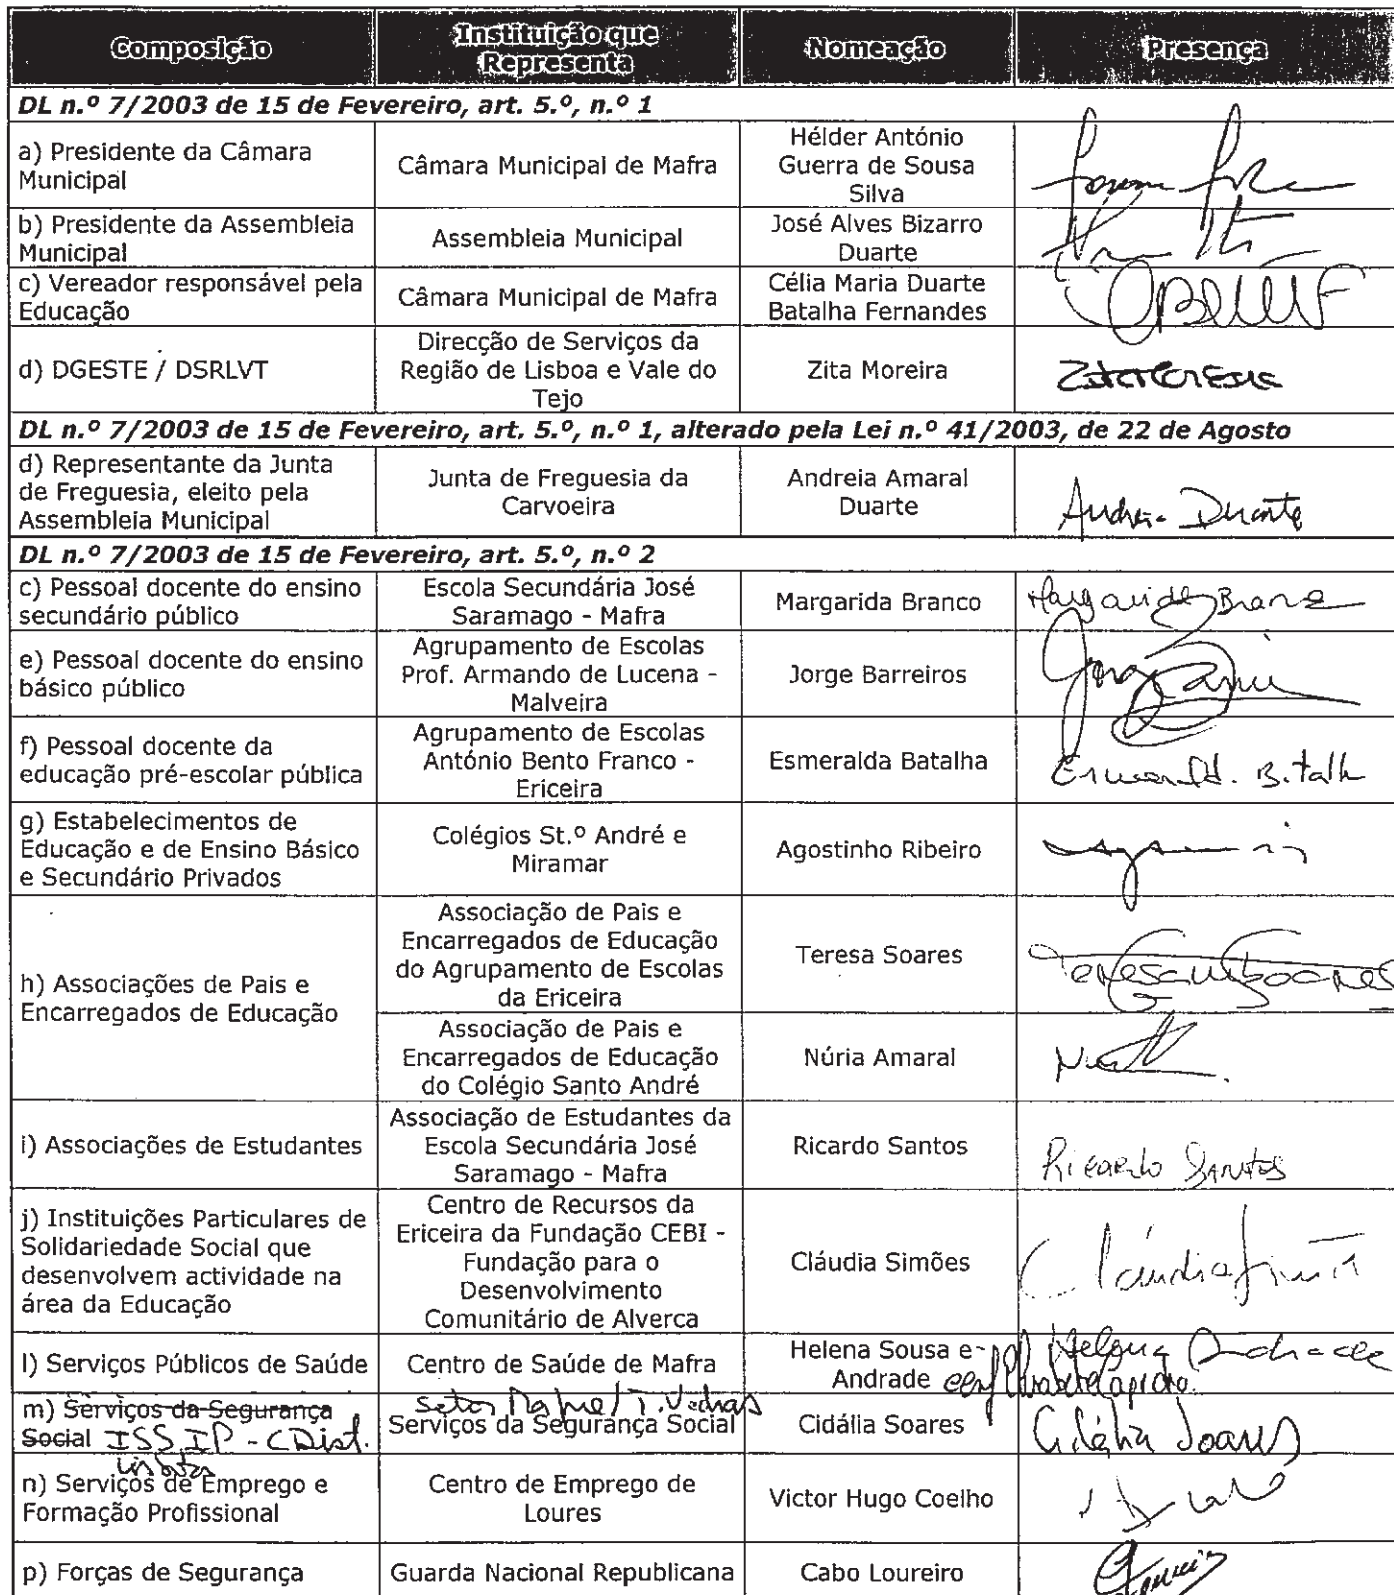 Composição
Instituição que
Representa
Nomeação
Presença
DL n.º 7/2003 de 15 de Fevereiro, art. 5.º, n.º 1
a) Presidente da Câmara
Municipal
Câmara Municipal de Mafra
Hélder António
Guerra de Sousa
Silva
b) Presidente da Assembleia
Municipal
Assembleia Municipal
José Alves Bizarro
Duarte
c) Vereador responsável pela
Educação
Câmara Municipal de Mafra
Célia Maria Duarte
Batalha Fernandes
d) DGESTE / DSRLVT
Direcção de Serviços da
Região de Lisboa e Vale do
Tejo
Zita Moreira
DL n.º 7/2003 de 15 de Fevereiro, art. 5.º, n.º 1, alterado pela Lei n.º 41/2003, de 22 de Agosto
d) Representante da Junta
de Freguesia, eleito pela
Assembleia Municipal
Junta de Freguesia da
Carvoeira
Andreia Amaral
Duarte
Andreia Duarte
DL n.º 7/2003 de 15 de Fevereiro, art. 5.º, n.º 2
c) Pessoal docente do ensino
secundário público
Escola Secundária José
Saramago - Mafra
Margarida Branco
Margarida Branco
e) Pessoal docente do ensino
básico público
Agrupamento de Escolas
Prof. Armando de Lucena -
Malveira
Jorge Barreiros
f) Pessoal docente da
educação pré-escolar pública
Agrupamento de Escolas
António Bento Franco -
Ericeira
Esmeralda Batalha
Esmeralda Batalha
g) Estabelecimentos de
Educação e de Ensino Básico
e Secundário Privados
Colégios St.º André e
Miramar
Agostinho Ribeiro
h) Associações de Pais e
Encarregados de Educação
Associação de Pais e
Encarregados de Educação
do Agrupamento de Escolas
da Ericeira
Teresa Soares
Associação de Pais e
Encarregados de Educação
do Colégio Santo André
Núria Amaral
i) Associações de Estudantes
Associação de Estudantes da
Escola Secundária José
Saramago - Mafra
Ricardo Santos
Ricardo Santos
j) Instituições Particulares de
Solidariedade Social que
desenvolvem actividade na
área da Educação
Centro de Recursos da
Ericeira da Fundação CEBI -
Fundação para o
Desenvolvimento
Comunitário de Alverca
Cláudia Simões
Cláudia Simões
l) Serviços Públicos de Saúde
Centro de Saúde de Mafra
Helena Sousa e
Andrade
Helena Andrade
m) Serviços da Segurança
Social ISS, IP - C Dist.
Lisboa
Setor Mafra / T. Vedras
Serviços da Segurança Social
Cidália Soares
Cidália Soares
n) Serviços de Emprego e
Formação Profissional
Centro de Emprego de
Loures
Victor Hugo Coelho
p) Forças de Segurança
Guarda Nacional Republicana
Cabo Loureiro